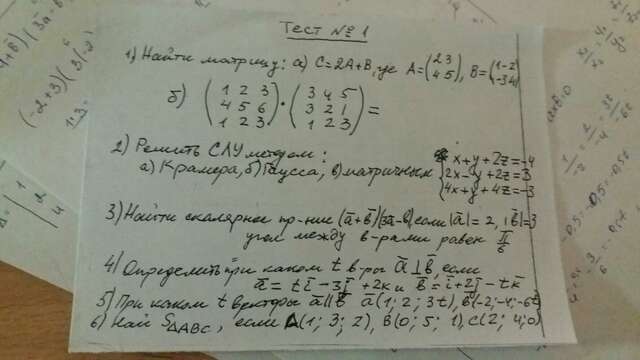 Тест № 1
1) Найти матрицу: а) C=2A+B, где A=(2 3
4 5), B=(1 -2
-3 4)
б) (1 2 3
4 5 6
1 2 3) · (3 4 5
3 2 1
1 2 3) =
2) Решить СЛУ методом:
а) Крамера, б) Гаусса, в) матричным
{x+y+2z=-4
2x-y+2z=3
4x+y+4z=-3
3) Найти скалярное пр-ние (a̅+b̅)(3a̅-b̅) если |a̅|=2, |b̅|=3
угол между в-рами равен π/6
4) Определить при каком t в-ры a̅⊥b̅, если
a̅=ti̅-3j̅+2k̅ и b̅=i̅+2j̅-tk̅
5) При каком t векторы a̅||b̅ a̅(1; 2; 3t), b̅(-2; -4; -6t)
6) Най S△ABC, если A(1; 3; 2), B(0; 5; 1), C(2; 4; 0)
(-2+3)(3